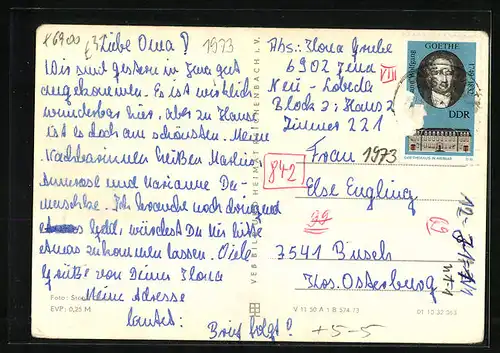 Liebe Oma!
Wir sind gestern in Jena gut
angekommen. Es ist wirklich
wunderbar hier. Aber zu Hause
ist es doch am schönsten. Meine
Nachbarinnen heißen Martina,
Annrose und Marianne Da-
muschke. Ich brauche noch dringend
etwas Geld, würdest Du mir bitte
etwas zukommen lassen. Viele
Grüße von Deiner Ilona
Meine Adresse
lautet:
Brief folgt!
1973
Abs.: Ilona Grube
6902 Jena
Neu-Lobeda
Block 2: Haus 2
Zimmer 221
VII
Frau
1973
842
Else Engling
39
62
3541 Büsch
Krs. Osterburg
+5-5
GOETHE
1749-1832
DDR
VEB BILD HEIMAT REICHENBACH I. V.
Foto:
EVP: 0,25 M
V 11 50 A 1 B 574/73